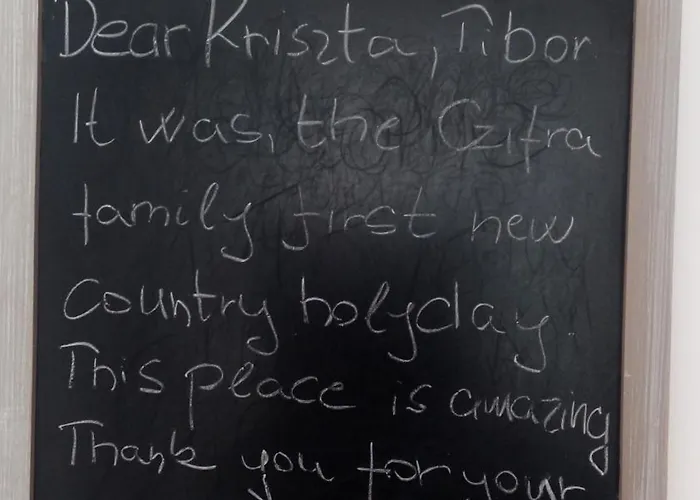 Dear Kriszta, Tibor
It was, the Czifra
family first new
country holyday.
This place is amazing
Thank you for your